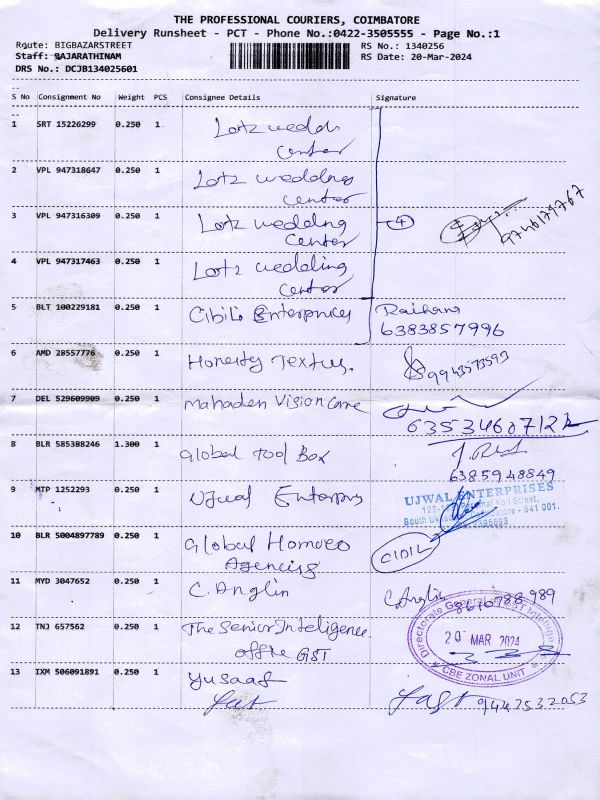 THE PROFESSIONAL COURIERS, COIMBATORE
Delivery Runsheet - PCT - Phone No.:0422-3505555 - Page No.:1
Route: BIGBAZARSTREET RS No.: 1340256
Staff: RAJARATHINAM RS Date: 20-Mar-2024
DRS No.: DCJB134025601
S No Consignment No Weight PCS Consignee Details Signature
1 SRT 15226299 0.250 1 Lotz
center
2 VPL 947318647 0.250 1 Lotz wedding
center
3 VPL 947316309 0.250 1 Lotz wedding
Center
4
9746179767
4 VPL 947317463 0.250 1 Lotz wedding
center
5 BLT 100229181 0.250 1 Cibili Enterprices Raihana
6383857996
6 AMD 28557776 0.250 1 Honesty
9943573593
7 DEL 529609909 0.250 1 Mahadev Vision care
8 BLR 585388246 1.300 1 Global Tool Box
6385948849
9 MTP 1252293 0.250 1 Ujwal
UJWAL ENTERPRISES
641 001.
10 BLR 5004897789 0.250 1 Global Homoeo
Agencies
CIDIL
11 MYD 3047652 0.250 1 C. Anglin C. Anglin
8610788989
12 TNJ 657562 0.250 1 The Senior Inteligence
office GST
Directorate General of GST Intelligence
20 MAR 2024
CBE ZONAL UNIT
13 IXM 506091891 0.250 1 Yusaaf
9447532053